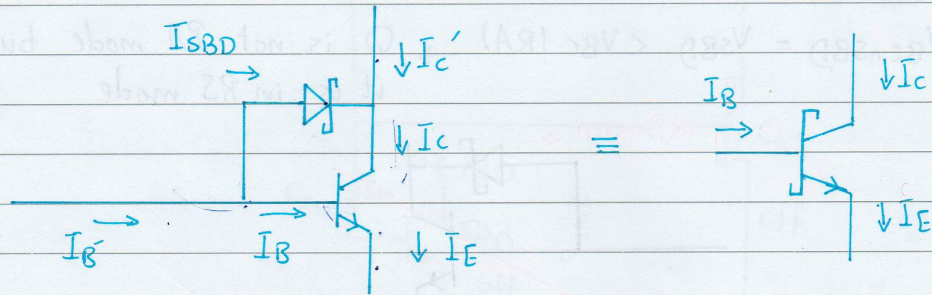 I_SBD
↓ I_C'
→
↓ I_C
I_B' → I_B →
↓ I_E
≡
I_B
→
↓ I_C
↓ I_E